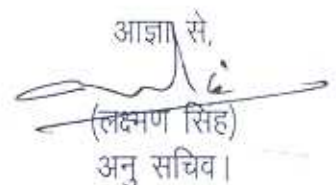 आज्ञा से,
(लक्ष्मण सिंह)
अनु सचिव।